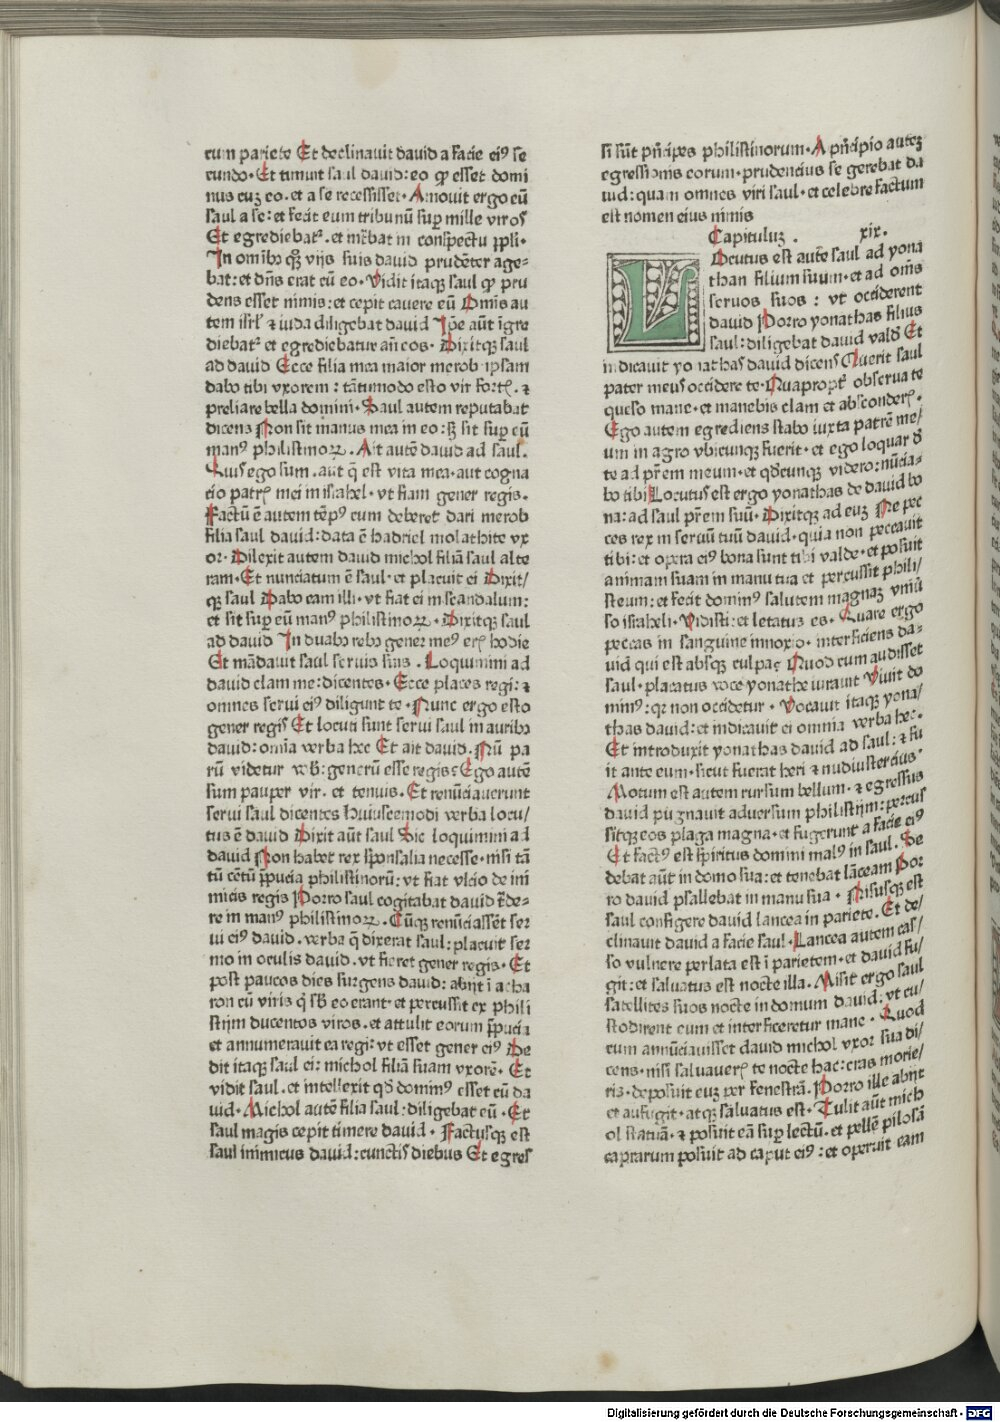 cum pariete Et declinauit dauid a facie ei⁹ se
cundo· Et timuit saul dauid: eo qꝙ esset domi
nus cuꝫ eo· et a se recessisset· Amouit ergo eū
saul a se: et fecit eum tribunū sup̄ mille viros
Et egrediebat᷑· et int̄bat in conspectu pp̄li·
In omīb₉ qꝫ vijs suis dauid prudēter age⸗
bat: et dn̄s erat cū eo· Vidit itaqꝫ saul qꝙ pru
dens esset nimis: et cepit cauere eū Om̄is au
tem isrl̄ ⁊ iuda diligebat dauid Ip̄e aūt īgre
diebat᷑ et egrediebatur an̄ eos· Dixitqꝫ saul
ad dauid Ecce filia mea maior merob· ipsam
dabo tibi vxorem: tātūmodo esto vir fort̄· ⁊
preliare bella domini· Saul autem reputabat
dicens Non sit manus mea in eo: sꝫ sit sup̄ eū
man⁹ philistinoꝝ· Ait autē dauid ad saul·
Quis ego sum· aut q̄ est vita mea· aut cogna
tio patr̄ mei in israhel· vt fiam gener regis·
Factū ē autem tēp⁹ cum deberet dari merob
filia saul dauid: data ē hadriel molathite vx
or· Dilexit autem dauid michol filiā saul alte
ram· Et nunciatum ē saul· et placuit ei Dixit/
qꝫ saul Dabo eam illi· vt fiat ei in scandalum:
et sit sup̄ eū man⁹ philistinoꝝ· Dixitqꝫ saul
ad dauid In duab₉ reb₉ gener me⁹ er̄ hodie
Et mādauit saul seruis suis· Loquimini ad
dauid clam me: dicentes· Ecce places regi: ⁊
omnes serui ei⁹ diligunt te· Nunc ergo esto
gener regis Et locuti sunt serui saul in aurib₉
dauid: omīa verba hec Et ait dauid· Nū pa
rū videtur vob̄: generū esse regis? Ego autē
sum pauper vir· et tenuis· Et renūciauerunt
serui saul dicentes Huiuscemodi verba locu/
tus ē dauid Dixit aūt saul Sic loquimini ad
dauid Non habet rex sponsalia necesse· nisi tā
tū cētū p̄pucia philistinorū: vt fiat vlcio de ini
micis regis Porro saul cogitabat dauid t̄de⸗
re in man⁹ philistinoꝝ· Cūqꝫ renūciassēt ser
ui ei⁹ dauid· verba q̄ dixerat saul: placuit ser
mo in oculis dauid· vt fieret gener regis· Et
post paucos dies surgens dauid: abijt ī acha
ron cū viris q̄ sb̄ eo erant· et percussit ex phili
stijm ducentos viros· et attulit eorum p̄pucia
et annumerauit ea regi: vt esset gener ei⁹ De
dit itaqꝫ saul ei: michol filiā suam vxorē· Et
vidit saul· et intellexit qd̄ domin⁹ esset cū da
uid· Michol autē filia saul: diligebat eū· Et
saul magis cepit timere dauid· Factusqꝫ est
saul inimicus dauid: cunctis diebus Et egres
si sūt pn̄cipes philistinorum· A pn̄cipio auteꝫ
egressionis eorum· prudencius se gerebat da
uid: quam omnes viri saul· et celebre factum
est nomen eius nimis
Capituluꝫ · xix·
Locutus est autē saul ad yona
than filium suum· et ad om̄s
seruos suos: vt occiderent
dauid Porro yonathas filius
saul: diligebat dauid valde Et
indicauit yonathas dauid dicens Querit saul
pater meus occidere te· Quapropt̄ obserua te
queso mane· et manebis clam et absconder̄·
Ego autem egrediens stabo iuxta patrē me/
um in agro vbicunqꝫ fuerit· et ego loquar d̄
te ad pr̄em meum· et qd̄cunqꝫ videro: nūcia⸗
bo tibi Locutus est ergo yonathas de dauid bo
na: ad saul pr̄em suū· Dixitqꝫ ad euꝫ Ne pec
ces rex in seruū tuū dauid· quia non peccauit
tibi: et opera ei⁹ bona sunt tibi valde· et posuit
animam suam in manu tua et percussit phili/
steum: et fecit domin⁹ salutem magnaꝫ vniū
so israheli· Vidisti: et letatus es· Quare ergo
peccas in sanguine innoxio· interficiens da⸗
uid qui est absqꝫ culpa? Quod cum audisset
saul· placatus voce yonathe iurauit Viuit do
min⁹: qꝛ non occidetur· Vocauit itaqꝫ yona/
thas dauid: et indicauit ei omnia verba hec·
Et introduxit yonathas dauid ad saul: ⁊ fu
it ante eum· sicut fuerat heri ⁊ nudiustercius·
Motum est autem rursum bellum· ⁊ egressus
dauid pūgnauit aduersum philistijm: percus
sitqꝫ eos plaga magna· et fugerunt a facie ei⁹
Et fact⁹ est spiritus domini mal⁹ in saul· Se
debat aūt in domo sua: et tenebat lāceam Por
ro dauid psallebat in manu sua· Nisusqꝫ est
saul configere dauid lancea in pariete· Et de/
clinauit dauid a facie saul· Lancea autem cas/
so vulnere perlata est ī parietem· et dauid fu/
git: et saluatus est nocte illa· Misit ergo saul
satellites suos nocte in domum dauid: vt cu/
stodirent eum et interficeretur mane· Quod
cum annūciauisset dauid michol vxor sua di/
cens· nisi saluauer̄ te nocte hac: cras morie/
ris· deposuit euꝫ per fenestrā· Porro ille abijt
et aufugit· atqꝫ saluatus est· Tulit aūt mich
ol statuā· ⁊ posuit eā sup̄ lectū· et pellē pilosā
caprarum posuit ad caput ei⁹: et operuit eam
Digitalisierung gefördert durch die Deutsche Forschungsgemeinschaft - DFG